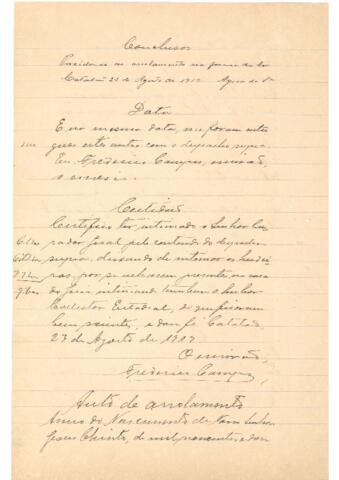 Conclusos
Proceda-se ao arrolamento na forma da lei
Catalão 23 de Agosto de 1912
Data
E, na mesma data, me foram entre
gues estes autos com o despacho supra.
Eu, Frederico Campos, escrivão,
o escrevi.
Certidão
Certifico ter intimado o Senhor Cu
rador Geral, pelo contendo do despacho
supra, deixando de intimar os herdei
ros, por se acharem presentes em casa
do Juiz, intimando tambem o Senhor
Collector Estadual, do que ficaram
bem scientes, e dou fé. Catalão,
23 de Agosto de 1912.
O escrivão,
Frederico Campos
Auto de arrolamento
Anno do Nascimento de Nosso Senhor
Jesus Christo, de mil novecentos e doze